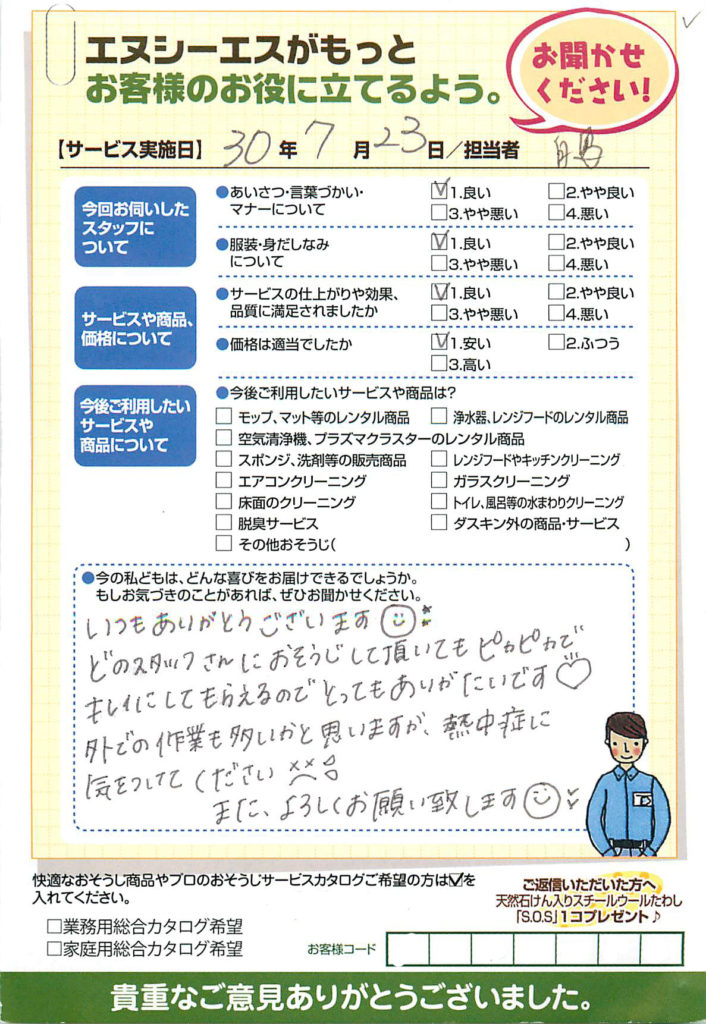 エヌシーエスがもっと
お客様のお役に立てるよう。
お聞かせ
ください!
【サービス実施日】 30年 7月23日/担当者
今回お伺いした
スタッフに
ついて
●あいさつ・言葉づかい・
マナーについて
☑1.良い □2.やや良い
□3.やや悪い □4.悪い
●服装・身だしなみ
について
☑1.良い □2.やや良い
□3.やや悪い □4.悪い
サービスや商品、
価格について
●サービスの仕上がりや効果、
品質に満足されましたか
☑1.良い □2.やや良い
□3.やや悪い □4.悪い
●価格は適当でしたか
☑1.安い □2.ふつう
□3.高い
今後ご利用したい
サービスや
商品について
●今後ご利用したいサービスや商品は?
□ モップ、マット等のレンタル商品 □ 浄水器、レンジフードのレンタル商品
□ 空気清浄機、プラズマクラスターのレンタル商品
□ スポンジ、洗剤等の販売商品 □ レンジフードやキッチンクリーニング
□ エアコンクリーニング □ ガラスクリーニング
□ 床面のクリーニング □ トイレ、風呂等の水まわりクリーニング
□ 脱臭サービス □ ダスキン外の商品・サービス
□ その他おそうじ( )
●今の私どもは、どんな喜びをお届けできるでしょうか。
もしお気づきのことがあれば、ぜひお聞かせください。
いつもありがとうございます
どのスタッフさんにおそうじして頂いてもピカピカで
キレイにしてもらえるのでとってもありがたいです♡
外での作業も多いかと思いますが、熱中症に
気をつけてください
また、よろしくお願い致します
快適なおそうじ商品やプロのおそうじサービスカタログご希望の方は☑を
入れてください。
□業務用総合カタログ希望
□家庭用総合カタログ希望
ご返信いただいた方へ
天然石けん入りスチールウールたわし
「S.O.S」1コプレゼント♪
お客様コード
貴重なご意見ありがとうございました。